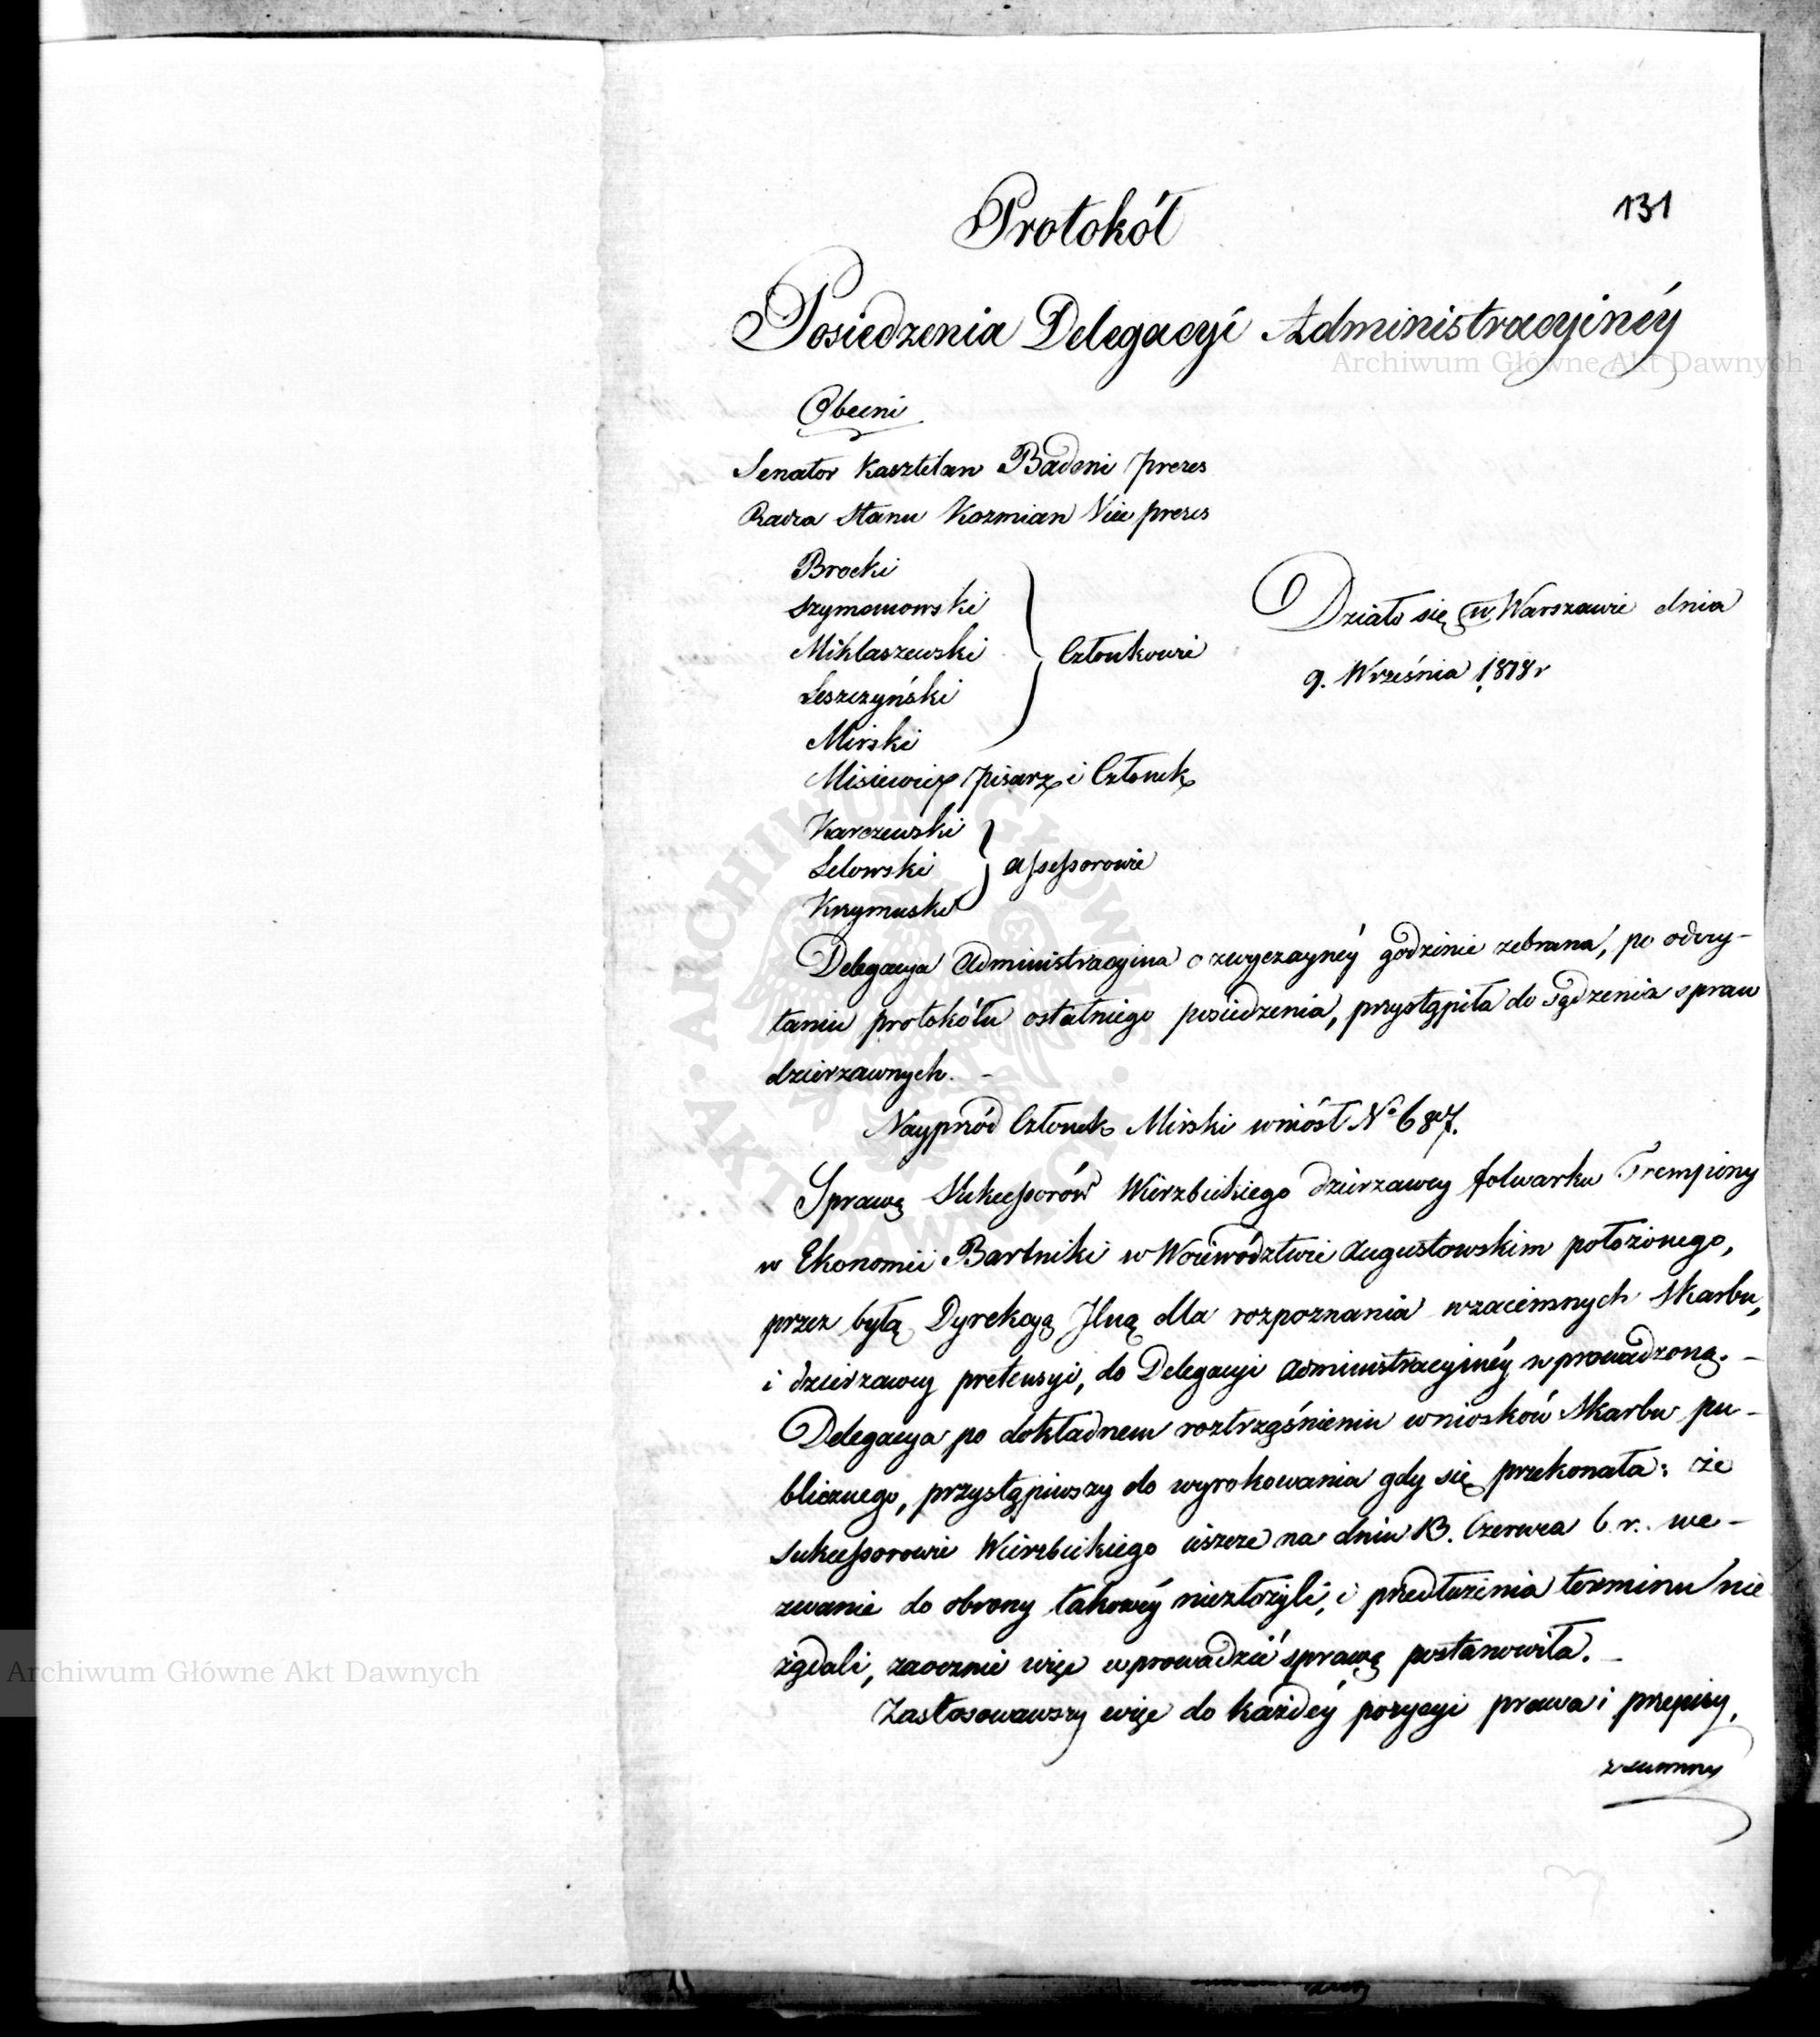 131
Protokół
Posiedzenia Delegacyi Administracyinéy
Archiwum Główne Akt Dawnych
Obecni
Senator Kasztelan Badeni prezes
Radca Stanu Kozmian Vice prezes
Brocki
Szymanowski
Miklaszewski
Leszczyński
Mirski
Członkowie
Działo się w Warszawie dnia
9. Września 1818 r
Misiewicz pisarz i Członek
Karczewski
Lelowski
Krzymuski
assessorowie
Delegacya Administracyina o zwyczaynéy godzinie zebrana, po odczy-
taniu protokółu ostatniego posiedzenia, przystąpiła do sądzenia spraw
dzierzawnych. -
Nayprzód Członek Mirski wniósł No 687.
Sprawę Sukcessorów Wierzbickiego dzierzawcy folwarku Trempiny
w Ekonomii Bartniki w Woiewództwie Augustowskim położonego,
przez byłą Dyrekcyą Jlną dla rozpoznania wzaciemnych Skarbu,
i dzierzawcy pretensyi, do Delegacyi Administracyinéy wprowadzoną. -
Delegacya po dokładnem roztrząśnieniu wniosków Skarbu pu-
blicznego, przystąpiwszy do wyrokowania gdy się przekonała: że
Sukcessorowie Wierzbickiego ieszcze na dniu 13. Czerwca b. r. we-
zwanie do obrony takowéy niezłożyli, i przedłużenia terminu nie
żądali, zaocznie więc wprowadzić sprawę postanowiła. -
Zastosowawszy więc do każdéy pozycyi prawa i przepisy,
z summy
Archiwum Główne Akt Dawnych
ARCHIWUM GŁÓWNE AKT DAWNYCH